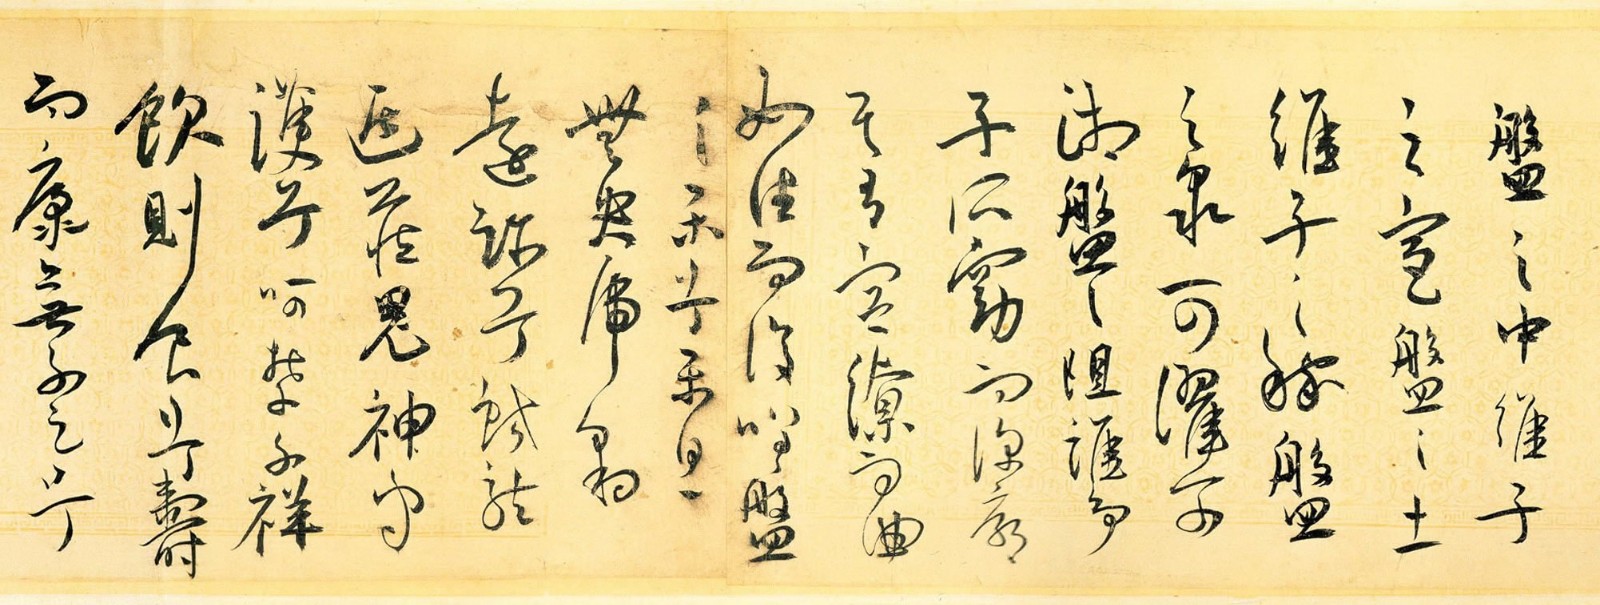 盤之中維子
之宮盤之土
維子之稼盤
之泉可濯可
湘盤之阻誰爭
子所窈而深廓
其有容繚而曲
如往而復嗟盤
之樂兮樂且
無央虎豹
遠跡兮蛟龍
遁藏鬼神守
護兮呵禁不祥
飲則食兮壽
而康無不足兮